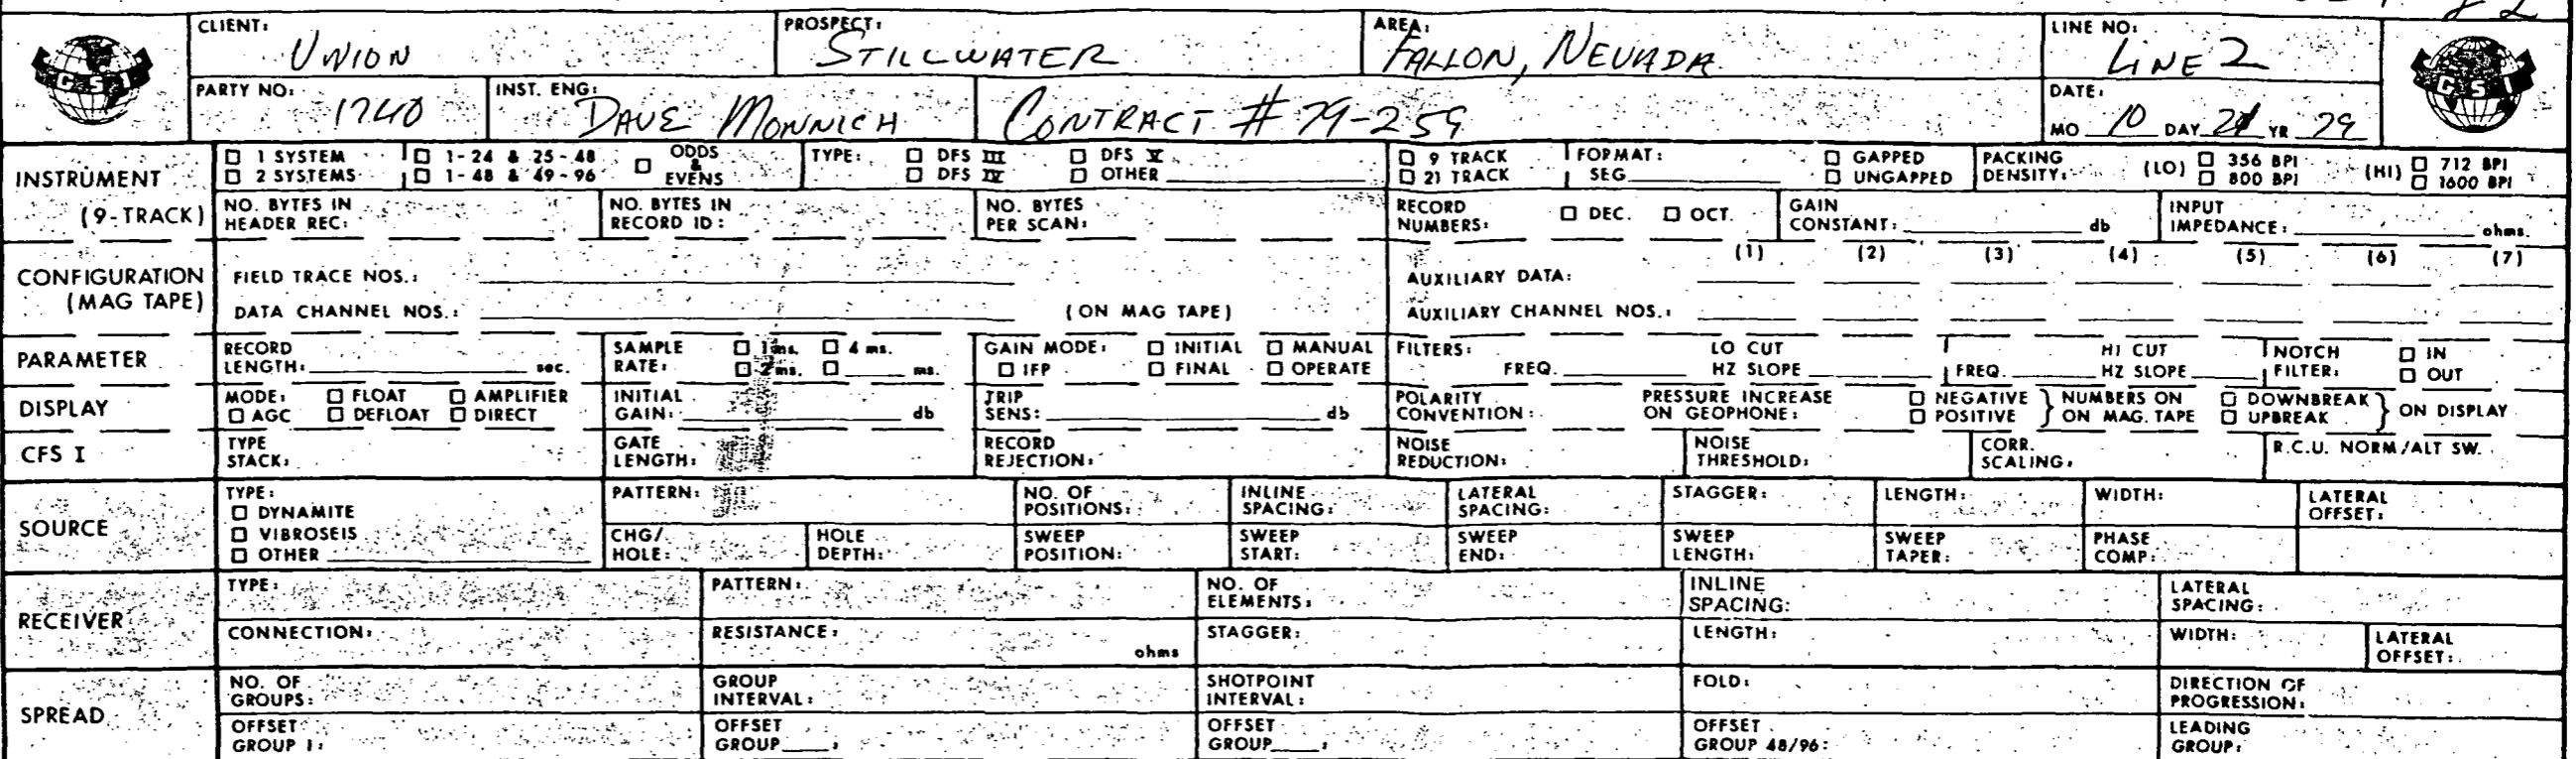 CLIENT: UNION PROSPECT: STILLWATER AREA: FALLON, NEVADA LINE NO: LINE 2
GSI GSI
PARTY NO: 1740 INST. ENG: DAVE MONNICH CONTRACT # 79-259 DATE: MO 10 DAY YR 79
INSTRUMENT (9-TRACK)
☐ 1 SYSTEM ☐ 1-24 & 25-48 ☐ ODDS & EVENS TYPE: ☐ DFS III ☐ DFS V ☐ 9 TRACK FORMAT: ☐ GAPPED PACKING DENSITY: (LO) ☐ 356 BPI (HI) ☐ 712 BPI
☐ 2 SYSTEMS ☐ 1-48 & 49-96 ☐ DFS IV ☐ OTHER ☐ 21 TRACK SEG ☐ UNGAPPED ☐ 800 BPI ☐ 1600 BPI
NO. BYTES IN HEADER REC: NO. BYTES IN RECORD ID: NO. BYTES PER SCAN: RECORD NUMBERS: ☐ DEC. ☐ OCT. GAIN CONSTANT: db INPUT IMPEDANCE: ohms.
CONFIGURATION (MAG TAPE)
(1) (2) (3) (4) (5) (6) (7)
FIELD TRACE NOS.: AUXILIARY DATA:
DATA CHANNEL NOS.: (ON MAG TAPE) AUXILIARY CHANNEL NOS.:
PARAMETER
RECORD LENGTH: sec. SAMPLE RATE: ☐ 1 ms. ☐ 4 ms. ☐ 2 ms. ☐ ms. GAIN MODE: ☐ INITIAL ☐ MANUAL ☐ IFP ☐ FINAL ☐ OPERATE FILTERS: LO CUT FREQ. HZ SLOPE HI CUT FREQ. HZ SLOPE NOTCH FILTER: ☐ IN ☐ OUT
DISPLAY
MODE: ☐ FLOAT ☐ AMPLIFIER ☐ AGC ☐ DEFLOAT ☐ DIRECT INITIAL GAIN: db TRIP SENS: db POLARITY CONVENTION: PRESSURE INCREASE ON GEOPHONE: ☐ NEGATIVE ☐ POSITIVE } NUMBERS ON MAG. TAPE ☐ DOWNBREAK ☐ UPBREAK } ON DISPLAY
CFS I
TYPE STACK: GATE LENGTH: RECORD REJECTION: NOISE REDUCTION: NOISE THRESHOLD: CORR. SCALING: R.C.U. NORM/ALT SW.
SOURCE
TYPE: ☐ DYNAMITE ☐ VIBROSEIS ☐ OTHER PATTERN: NO. OF POSITIONS: INLINE SPACING: LATERAL SPACING: STAGGER: LENGTH: WIDTH: LATERAL OFFSET:
CHG/HOLE: HOLE DEPTH: SWEEP POSITION: SWEEP START: SWEEP END: SWEEP LENGTH: SWEEP TAPER: PHASE COMP:
RECEIVER
TYPE: PATTERN: NO. OF ELEMENTS: INLINE SPACING: LATERAL SPACING:
CONNECTION: RESISTANCE: ohms STAGGER: LENGTH: WIDTH: LATERAL OFFSET:
SPREAD
NO. OF GROUPS: GROUP INTERVAL: SHOTPOINT INTERVAL: FOLD: DIRECTION OF PROGRESSION:
OFFSET GROUP 1: OFFSET GROUP : OFFSET GROUP : OFFSET GROUP 48/96: LEADING GROUP: